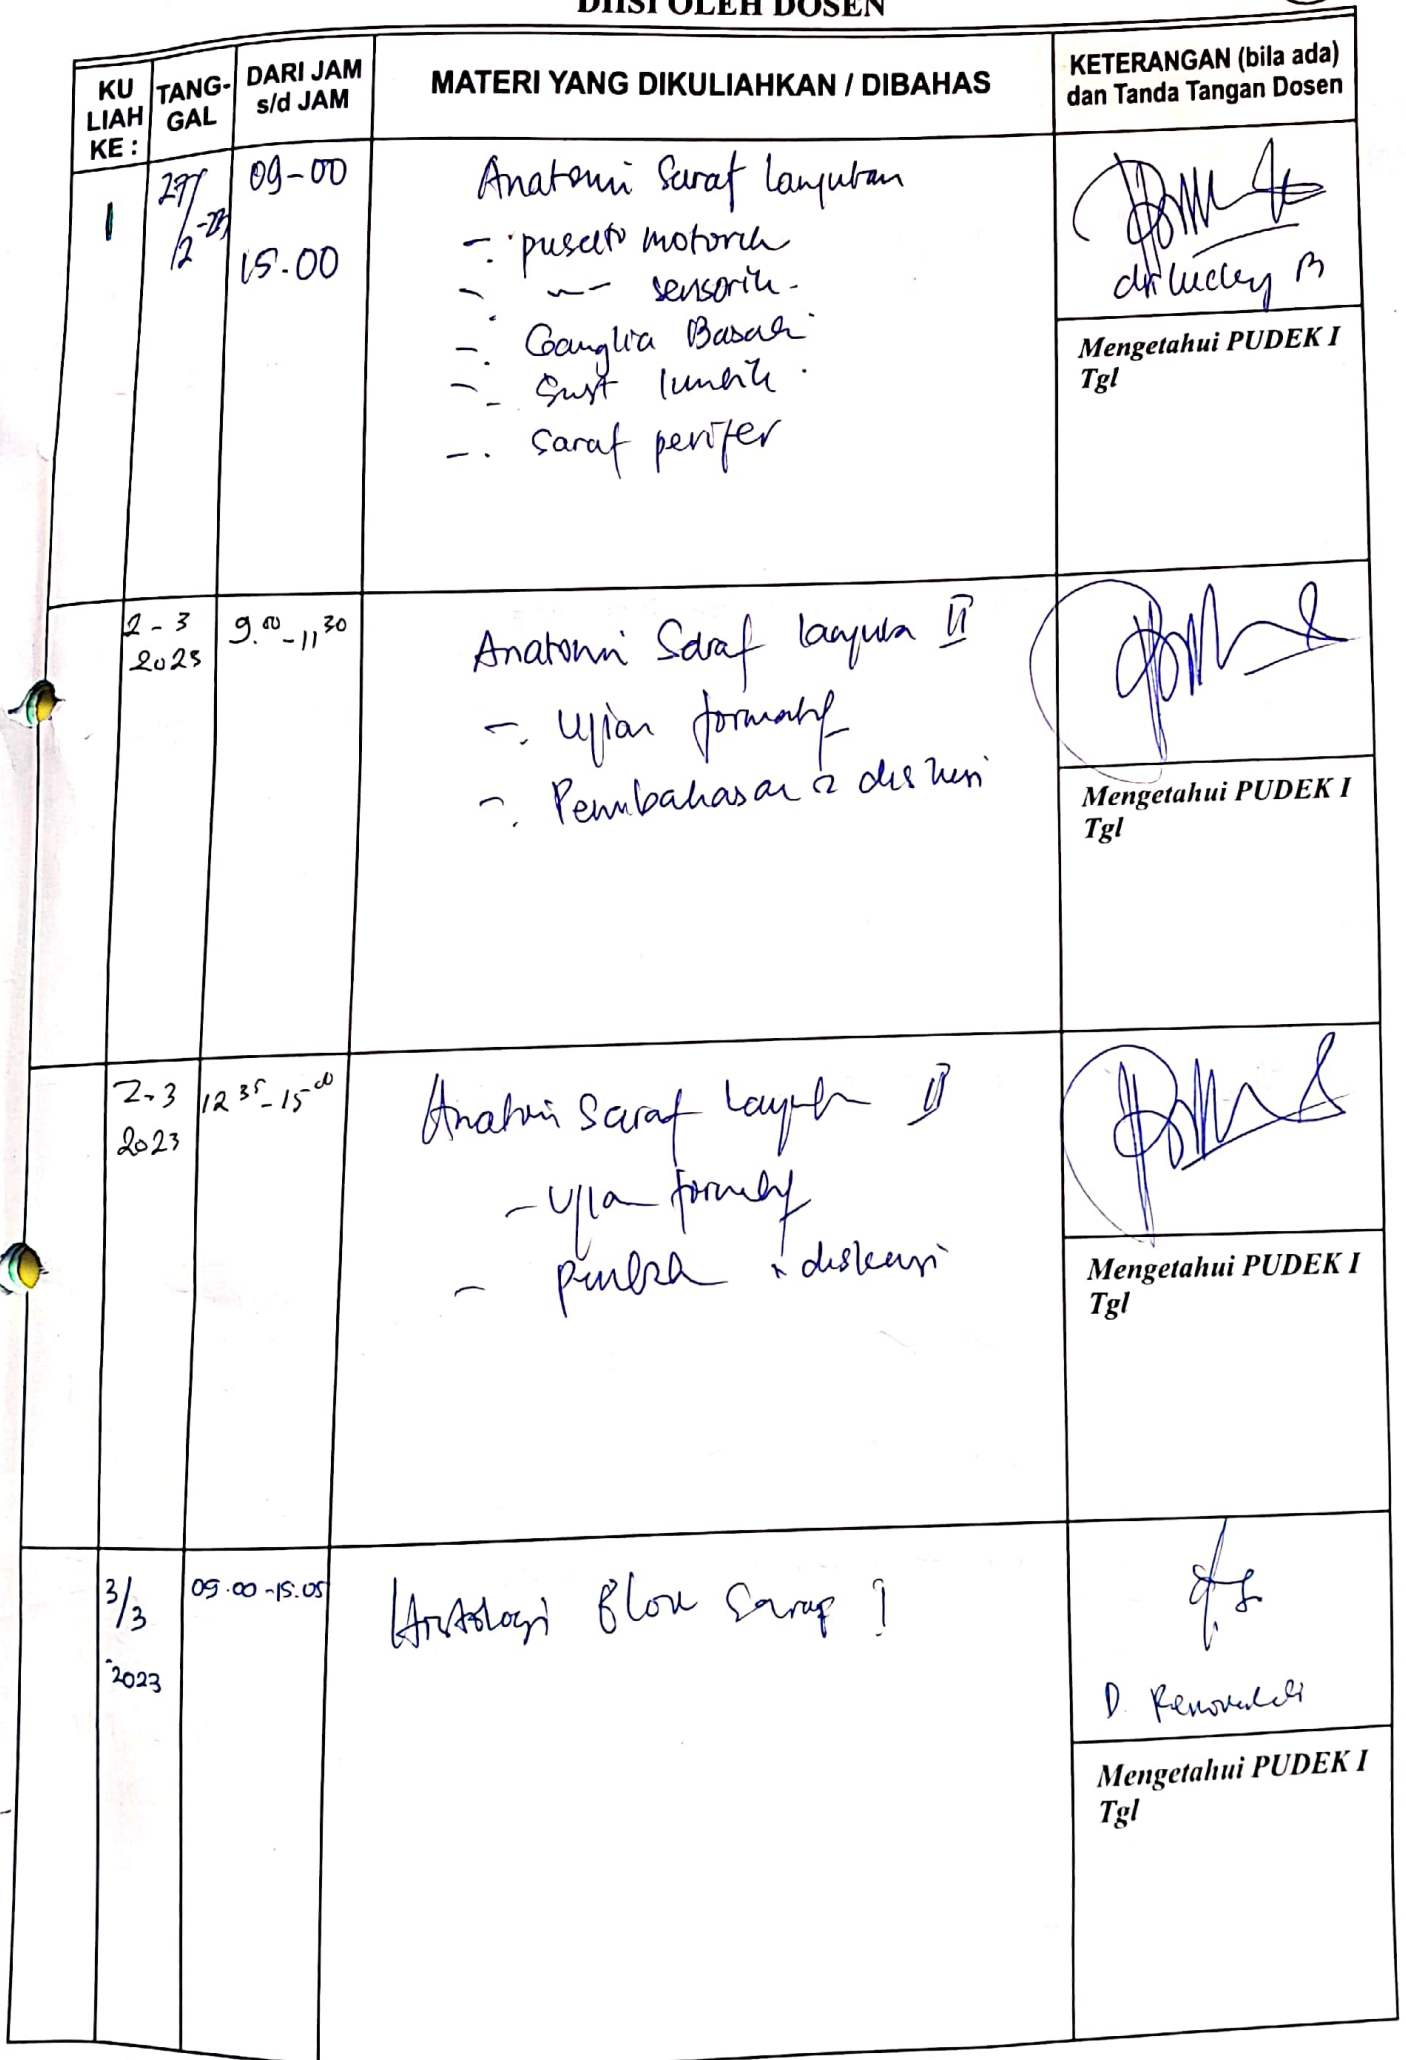 DIISI OLEH DOSEN
KU LIAH KE :
TANG-GAL
DARI JAM s/d JAM
MATERI YANG DIKULIAHKAN / DIBAHAS
KETERANGAN (bila ada) dan Tanda Tangan Dosen
1
27/2-23
09-00
15.00
Anatomi Saraf Lanjutan
- pusat motorik
- sensorik
- Ganglia Basal
- Sist limbik
- Saraf perifer
Mengetahui PUDEK I
Tgl
2-3
2023
9.00-11.30
Anatomi Saraf Lanjutan II
- Ujian formatif
- Pembahasan & diskusi
Mengetahui PUDEK I
Tgl
2-3
2023
12 35-15-00
Anatomi Saraf II
- Ujian formatif
- diskusi
Mengetahui PUDEK I
Tgl
3/3
2023
09.00-15.05
Histologi Blok Saraf I
Mengetahui PUDEK I
Tgl